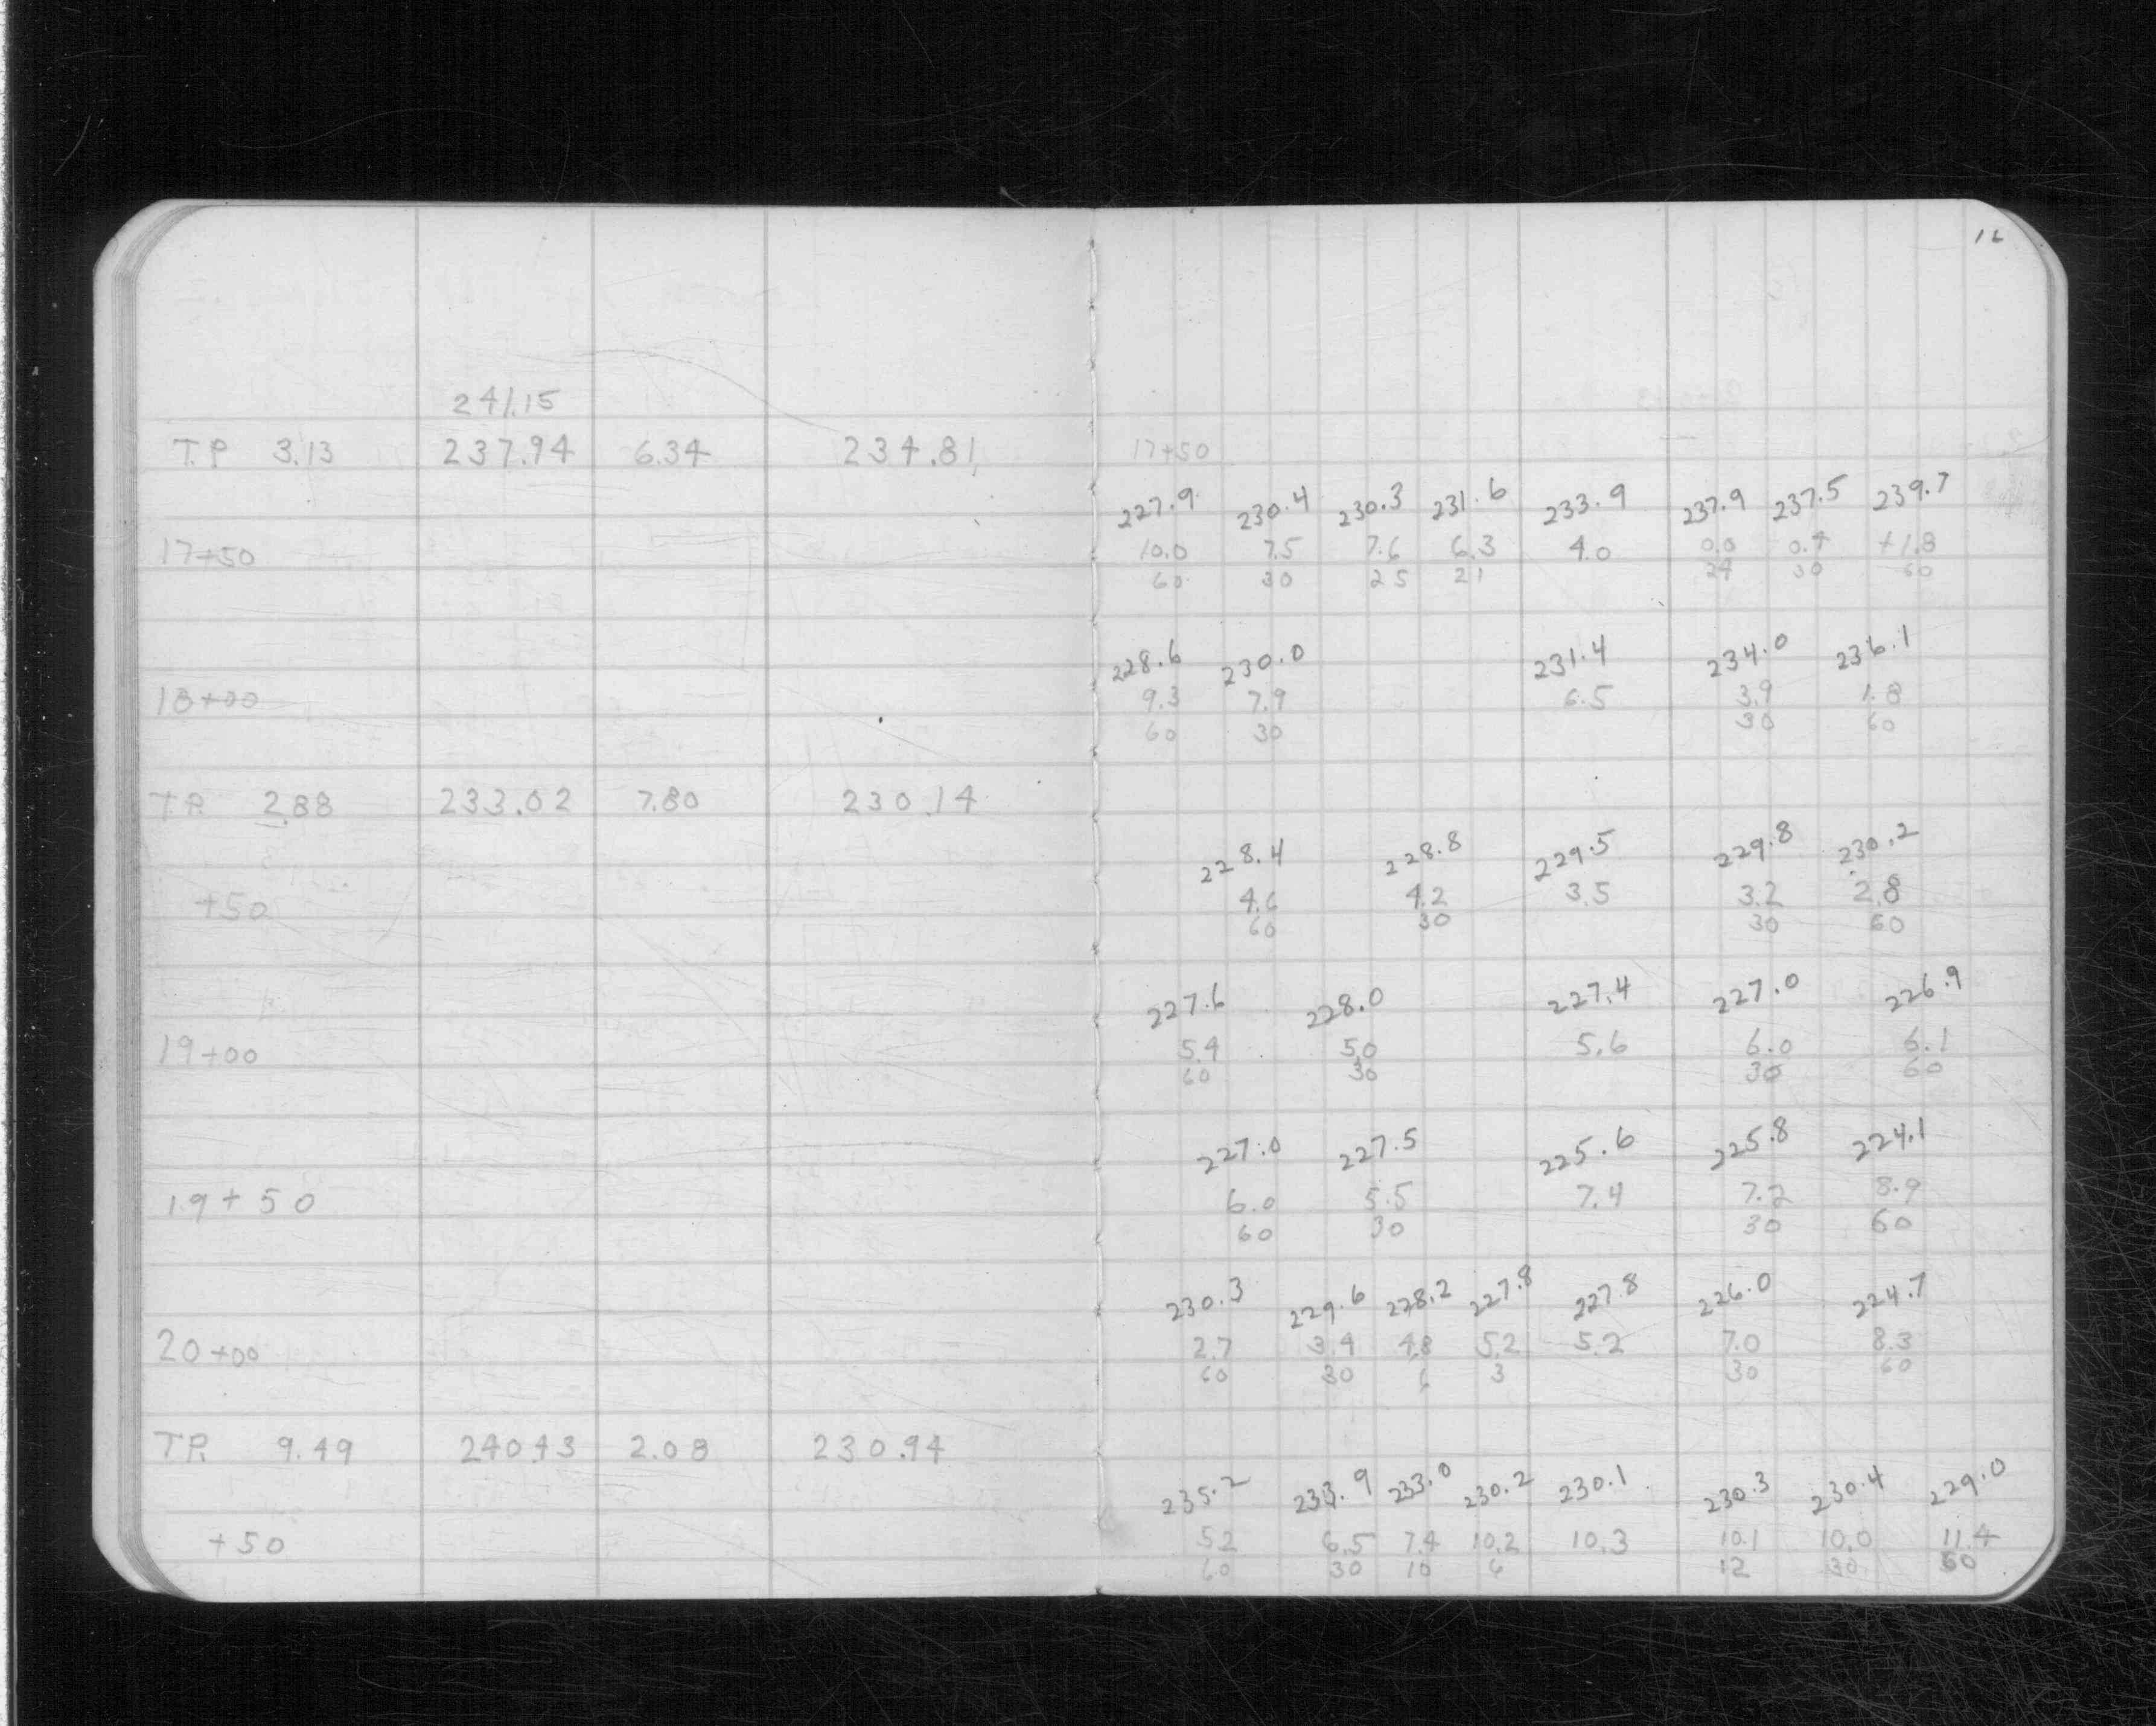 16
241.15
T.P. 3.13 237.94 6.34 234.81 17+50
227.9 230.4 230.3 231.6 233.9 237.9 237.5 239.7
17+50 10.0 7.5 7.6 6.3 4.0 0.0 0.4 +1.8
60 30 25 21 24 30 60
228.6 230.0 231.4 234.0 236.1
18+00 9.3 7.9 6.5 3.9 1.8
60 30 30 60
T.P. 2.88 233.02 7.80 230.14
228.4 228.8 229.5 229.8 230.2
+50 4.6 4.2 3.5 3.2 2.8
60 30 30 60
227.6 228.0 227.4 227.0 226.9
19+00 5.4 5.0 5.6 6.0 6.1
60 30 30 60
227.0 227.5 225.6 225.8 224.1
19+50 6.0 5.5 7.4 7.2 8.9
60 30 30 60
230.3 229.6 228.2 227.8 227.8 226.0 224.7
20+00 2.7 3.4 4.8 5.2 5.2 7.0 8.3
60 30 6 3 30 60
T.P. 9.49 240.43 2.08 230.94
235.2 233.9 233.0 230.2 230.1 230.3 230.4 229.0
+50 5.2 6.5 7.4 10.2 10.3 10.1 10.0 11.4
60 30 10 6 12 30 60